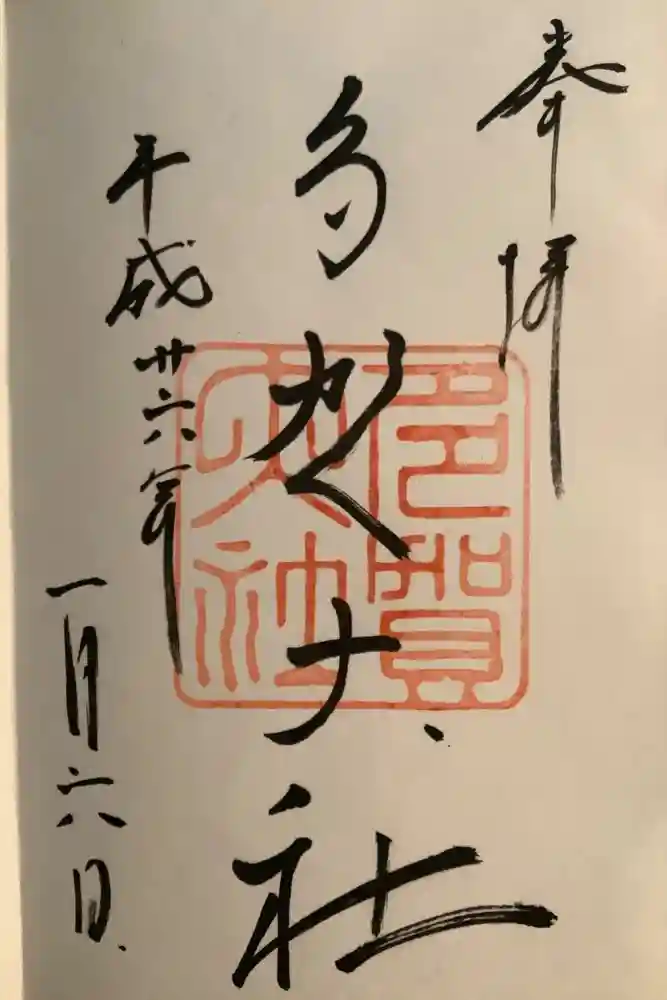 奉拝
多賀大社
平成廿六年
一月六日
多賀
大社